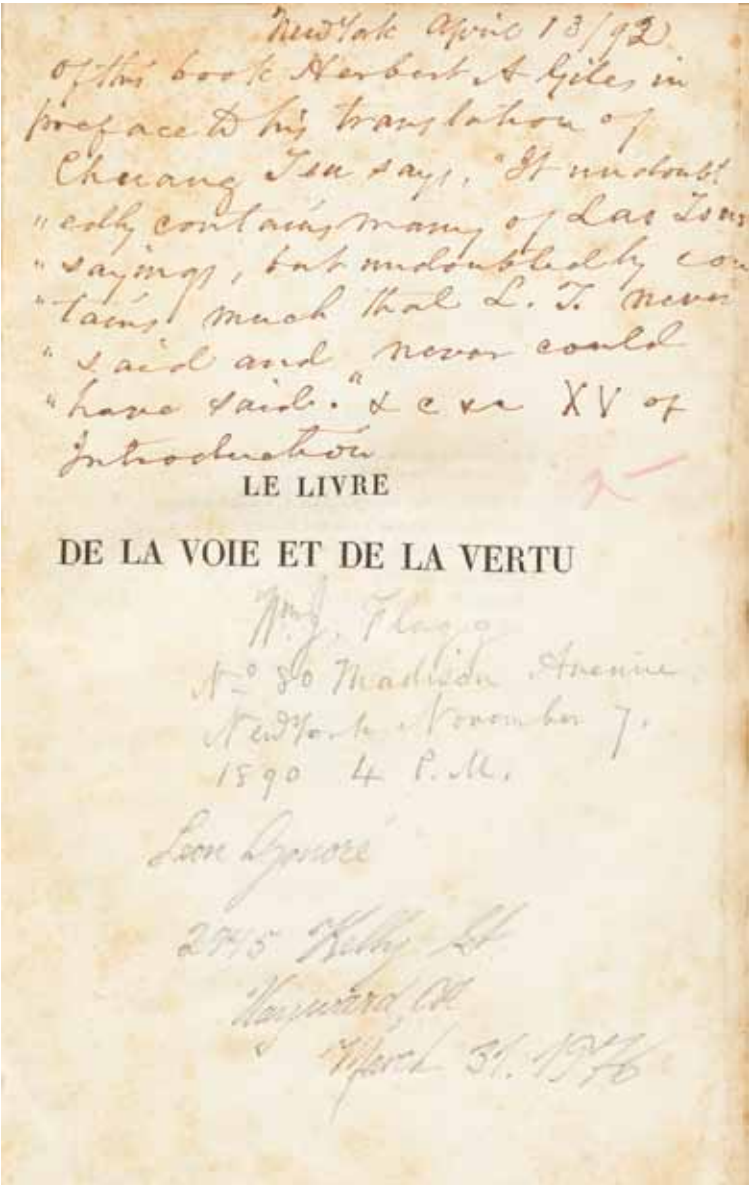 New York April 13/92
Of this book Herbert A Giles in
preface to his translation of
Chuang Tsu says, "It undoubt
"edly contains many of Lao Tsus
"sayings, but undoubtedly con
"tains much that L. T. never
"said and never could
"have said." &c XV of
Introduction
LE LIVRE
DE LA VOIE ET DE LA VERTU
Wm J. Flagg
No 80 Madison Avenue
New York November 7.
1890 4 P.M.
Leon
Kelly St
Hayward, CA
March 31. 1976